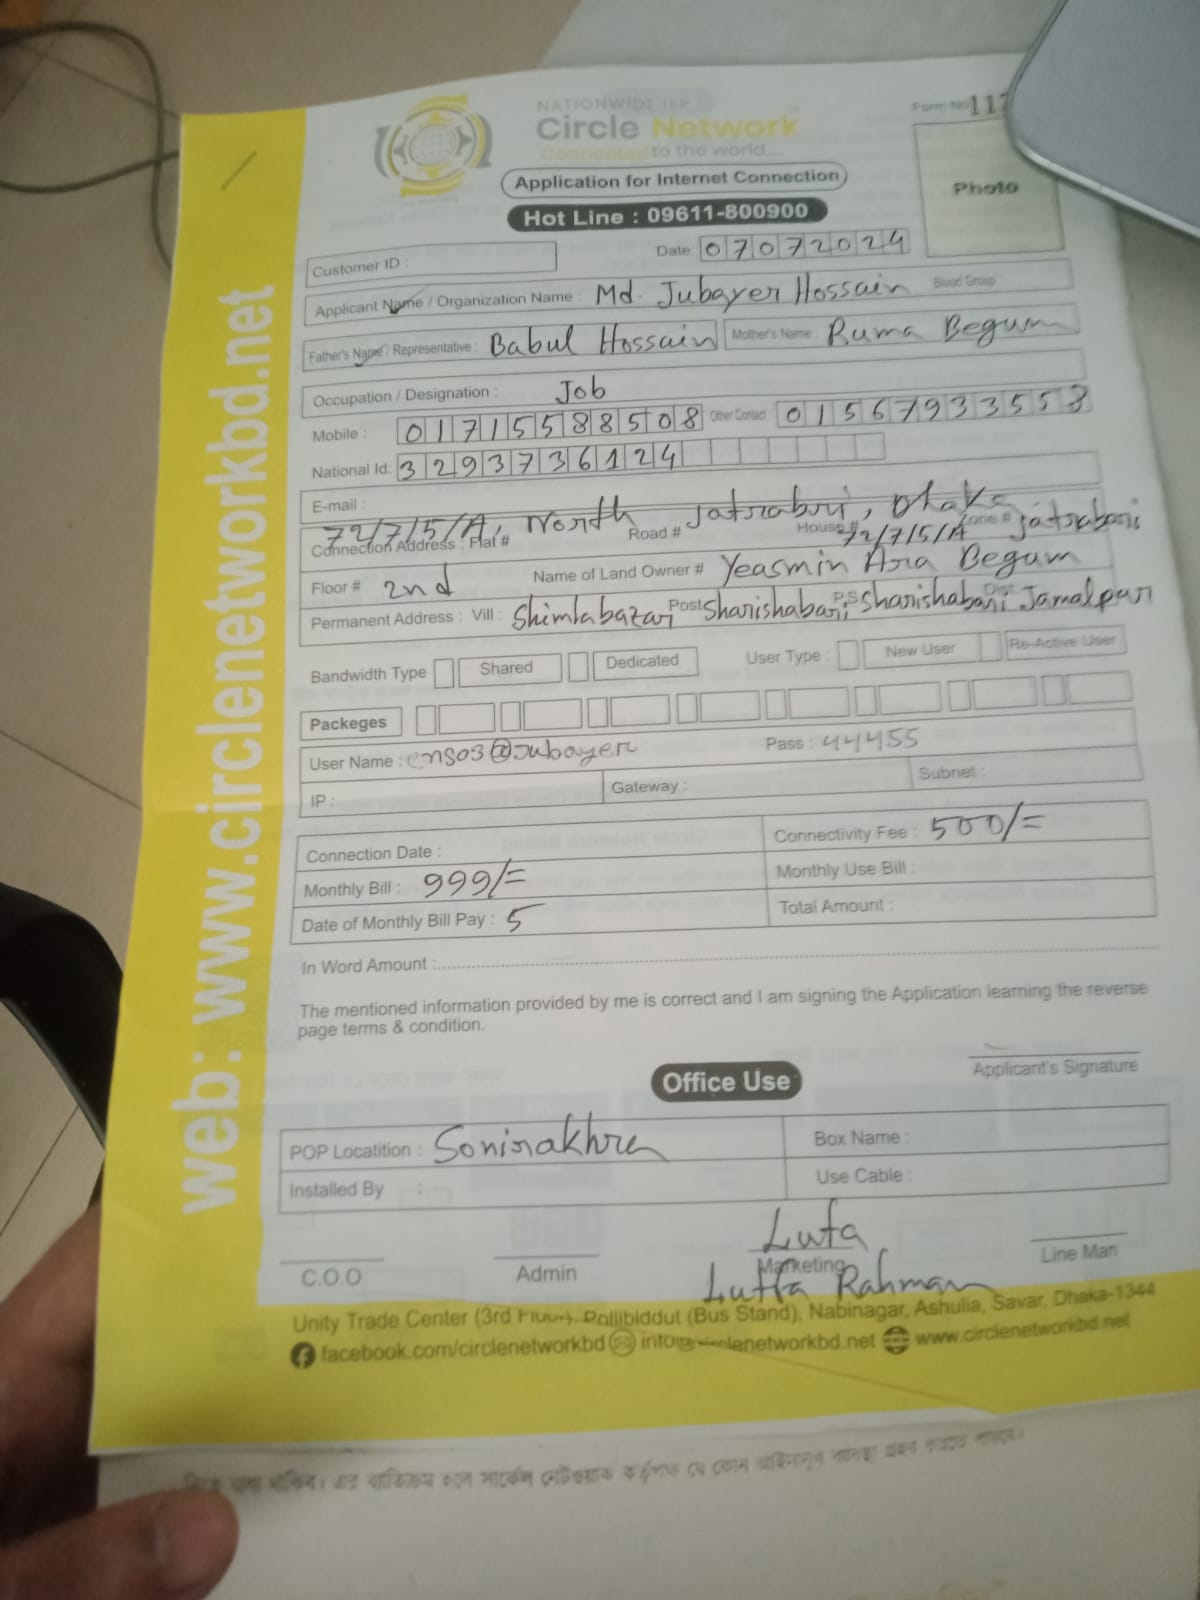 NATIONWIDE ISP
Circle Network
Connected to the world....
Form No 117
Photo
Application for Internet Connection
Hot Line : 09611-800900
Date: 07072024
Customer ID :
Applicant Name / Organization Name : Md. Jubayer Hossain Blood Group
Father's Name / Representative : Babul Hossain Mother's Name Ruma Begum
Occupation / Designation : Job
Mobile : 01715588508 Other Contact 01567933558
National Id: 3293736124
E-mail :
72/7/5/A, North Jatrabari, Dhaka
Connection Address : Flat # Road # House # 72/7/5/A Zone # jatrabari
Floor # 2nd Name of Land Owner # Yeasmin Ara Begum
Permanent Address : Vill : Shimlabazar, Post Sharishabari, P.S Sharishabari, Dist. Jamalpur
Bandwidth Type Shared Dedicated User Type : New User Re-Active User
Packeges
User Name : cns03@Jubayer Pass : 44455
IP : Gateway : Subnet :
Connection Date : Connectivity Fee : 500/=
Monthly Bill : 999/= Monthly Use Bill :
Date of Monthly Bill Pay : 5 Total Amount :
In Word Amount :
The mentioned information provided by me is correct and I am signing the Application learning the reverse
page terms & condition.
Applicant's Signature
Office Use
POP Locatition : Sonirakhra Box Name :
Installed By : Use Cable :
Lufa
C.O.O Admin Marketing Line Man
Lutfa Rahman
Unity Trade Center (3rd Floor), Pollibiddut (Bus Stand), Nabinagar, Ashulia, Savar, Dhaka-1344
facebook.com/circlenetworkbd info@circlenetworkbd.net www.circlenetworkbd.net
web: www.circlenetworkbd.net